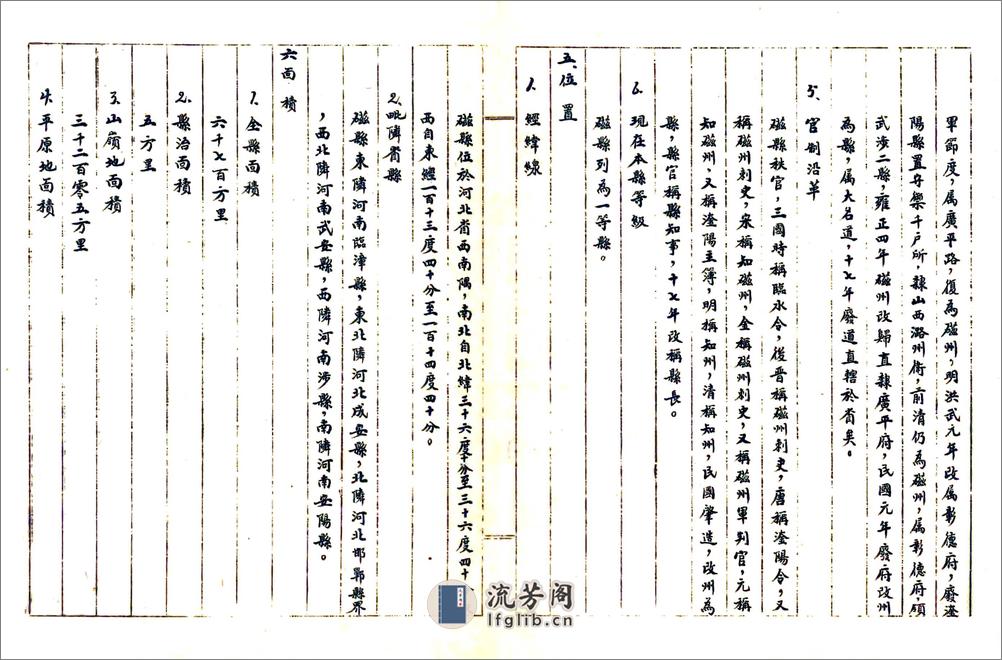 軍節度，属廣平路，復為磁州，明洪武元年改属彰德府，廢滏
陽縣置守禦千户所，隸山西潞州衛，前清仍為磁州，属彰德府，領
武涉二縣，雍正四年磁州改歸直隸廣平府，民國元年廢府改州
為縣，属大名道，十七年廢道直轄於省矣。
5、官制沿革
磁縣秩官，三國時稱臨水令，後晋稱磁州刺史，唐稱滏陽令，又
稱磁州刺史，宋稱知磁州，金稱磁州刺史，又稱磁州軍判官，元稱
知磁州，又稱滏陽主簿，明稱知州，清稱知州，民國肇造，改州為
縣，縣官稱縣知事，十七年改稱縣長。
6、現在本縣等級
磁縣列為一等縣。
五、位置
1、經緯線
磁縣位於河北省西南隅，南北自北緯三十六度十分至三十六度四十
西自東經一百十三度四十分至一百十四度四十分。
2、毗隣省縣
磁縣東隣河南臨漳縣，東北隣河北成安縣，北隣河北邯鄲縣界
，西北隣河南武安縣，西隣河南涉縣，南隣河南安陽縣。
六面積
1、全縣面積
六千七百方里
2、縣治面積
五方里
3、山嶺地面積
三千二百零五方里
4、平原地面積
流芳阁
lfglib.cn